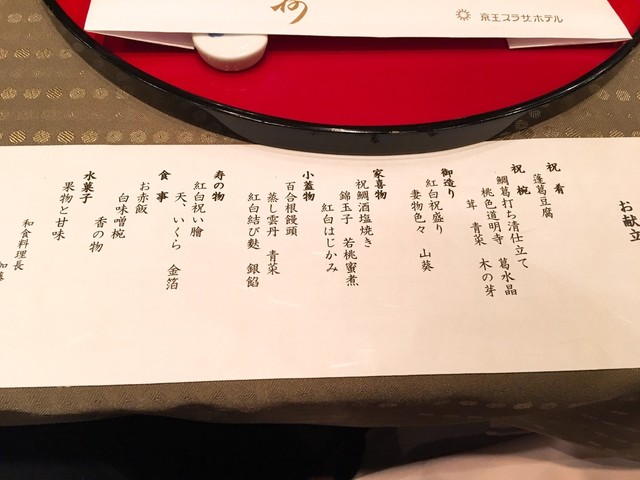 京王プラザホテル
お献立
祝肴
蓬葛豆腐
祝椀
鯛葛打ち清仕立て 葛水晶
桃色道明寺
茸 青菜 木の芽
御造り
紅白祝盛り
妻物色々 山葵
家喜物
祝鯛酒塩焼き
錦玉子 若桃蜜煮
紅白はじかみ
小蓋物
百合根饅頭
蒸し雲丹 青菜
紅白結び麩 銀餡
寿の物
紅白祝い膾
天、いくら 金箔
食事
お赤飯
白味噌椀
香の物
水菓子
果物と甘味
和食料理長